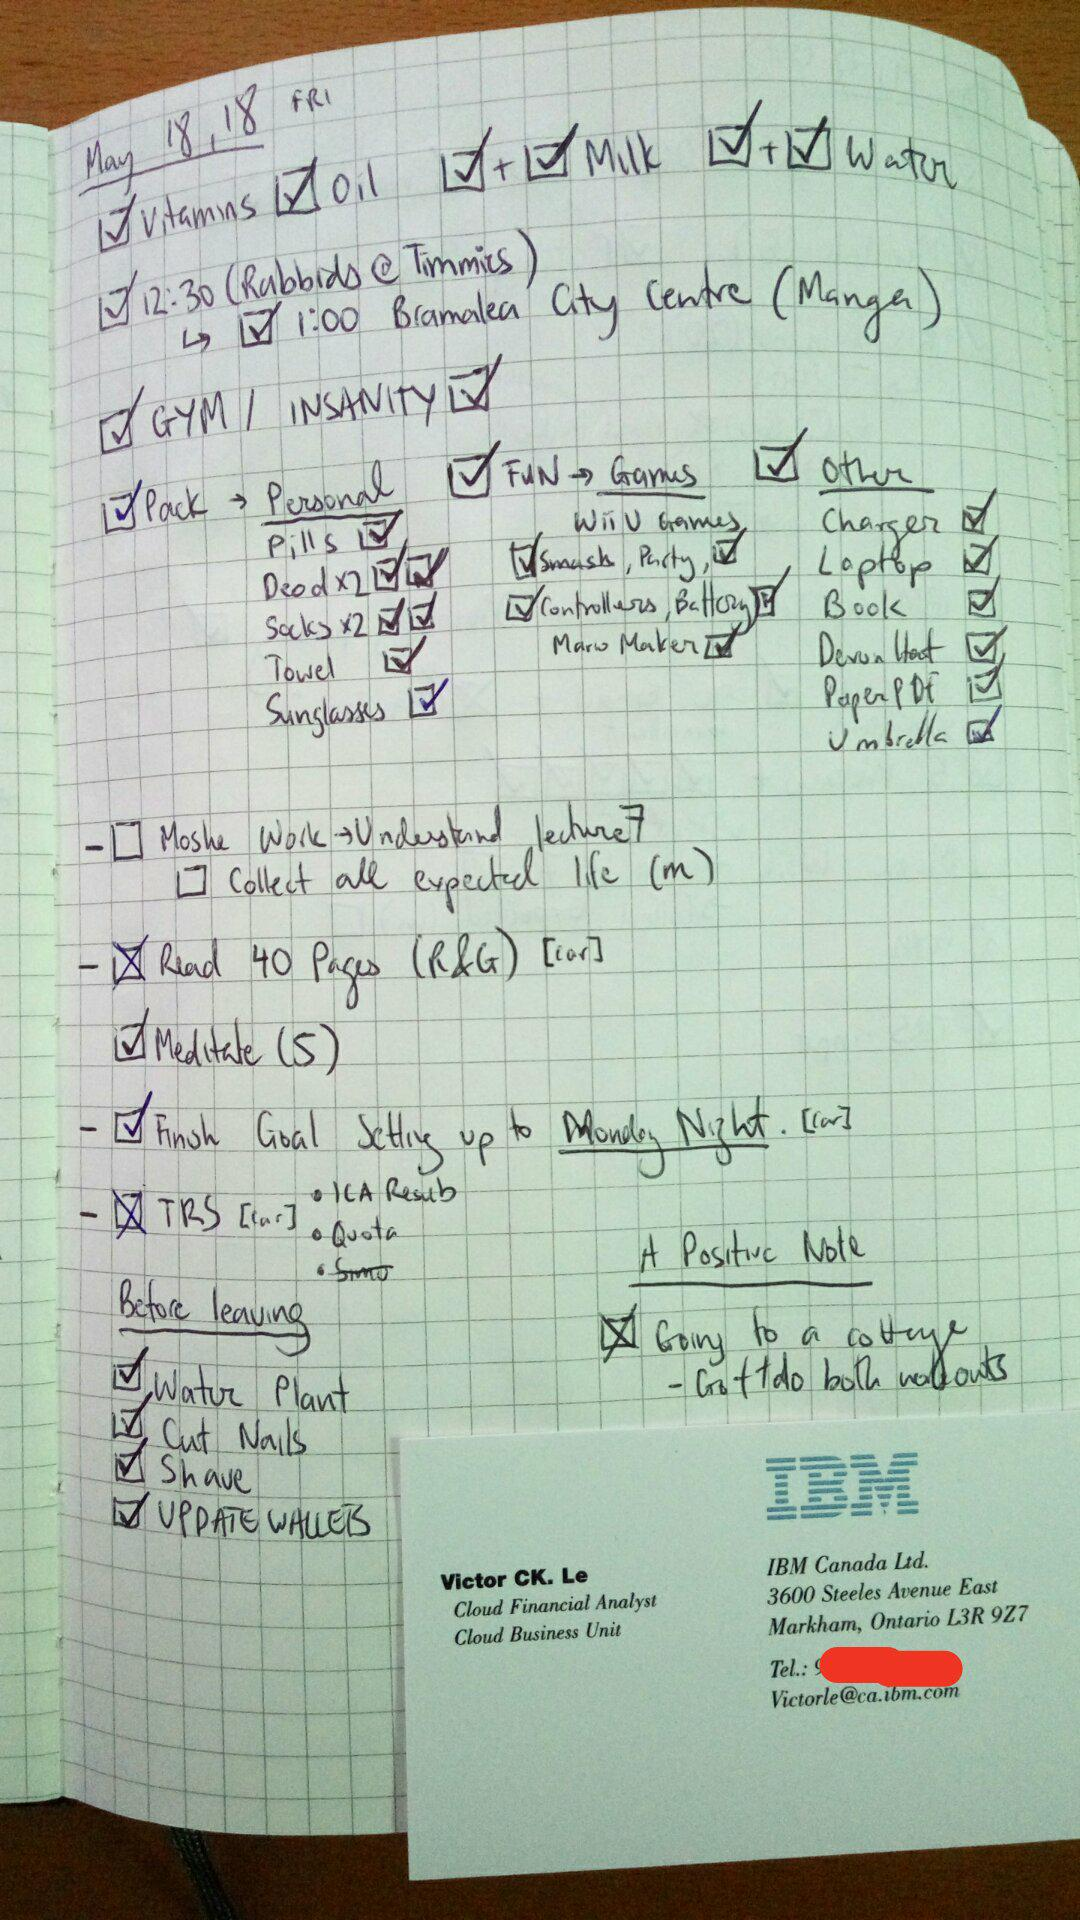 May 18, 18 FRI
☑ Vitamins ☑ Oil ☑+☑ Milk ☑+☑ Water
☑ 12:30 (Rabbids @ Timmies)
↳ ☑ 1:00 Bramalea City Centre (Manga)
☑ GYM / INSANITY ☑
☑ Pack → Personal
Pills ☑
Deod x2 ☑☑
Socks x2 ☑☑
Towel ☑
Sunglasses ☑
☑ FUN → Games
Wii U Games
☑ Smash, Party, ☑
☑ Controllers, Battery ☑
Mario Maker ☑
☑ Other
Charger ☑
Laptop ☑
Book ☑
Devon Hoat ☑
Paper PDF ☑
Umbrella ☑
- ☐ Moshe Work → Understand lecture 7
☐ Collect all expected life (m)
- ☒ Read 40 Pages (R&G) [car]
☑ Meditate (5)
- ☑ Finish Goal Setting up to Monday Night. [car]
- ☒ TRS [car] • ICA Resub
• Quota
Before leaving
☑ Water Plant
☑ Cut Nails
☑ Shave
☑ UPDATE WALLETS
A Positive Note
☒ Going to a cottage
- Got to do both workouts
IBM
Victor CK. Le
Cloud Financial Analyst
Cloud Business Unit
IBM Canada Ltd.
3600 Steeles Avenue East
Markham, Ontario L3R 9Z7
Tel.: 9
Victorle@ca.ibm.com